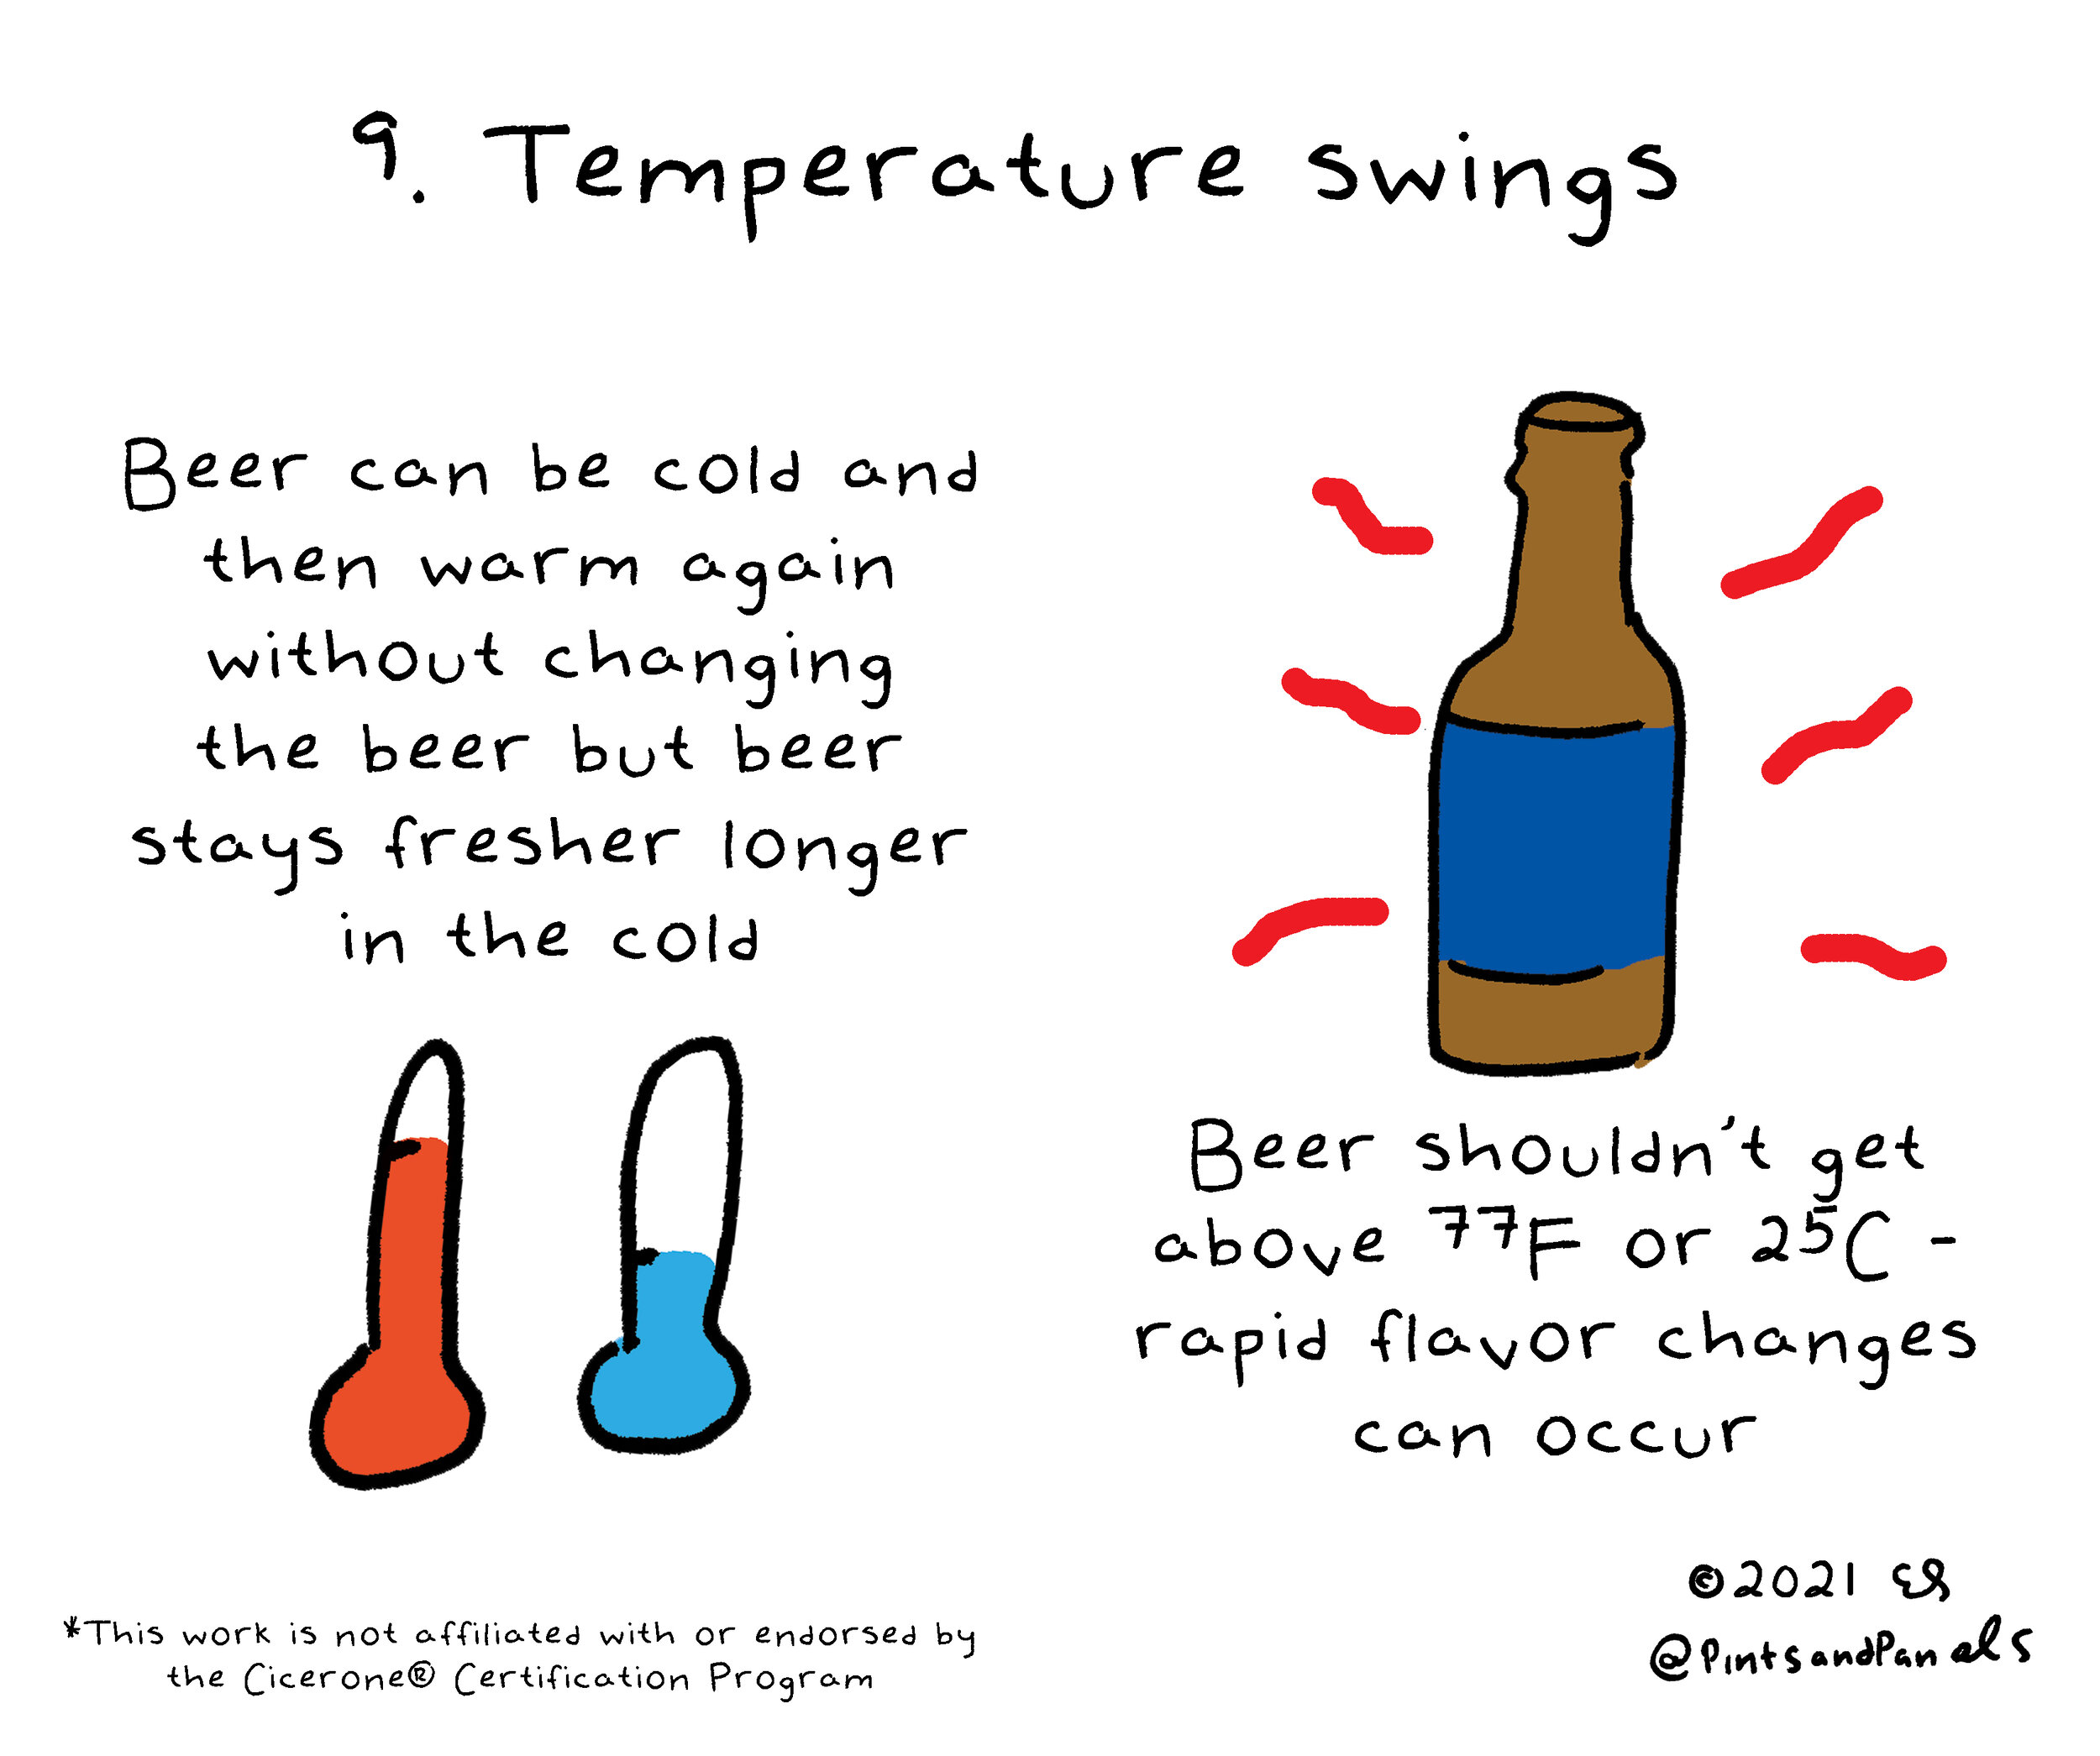 9. Temperature swings
Beer can be cold and
then warm again
without changing
the beer but beer
stays fresher longer
in the cold
Beer shouldn't get
above 77F or 25C -
rapid flavor changes
can occur
*This work is not affiliated with or endorsed by
the Cicerone® Certification Program
©2021 ES
@PintsandPanels